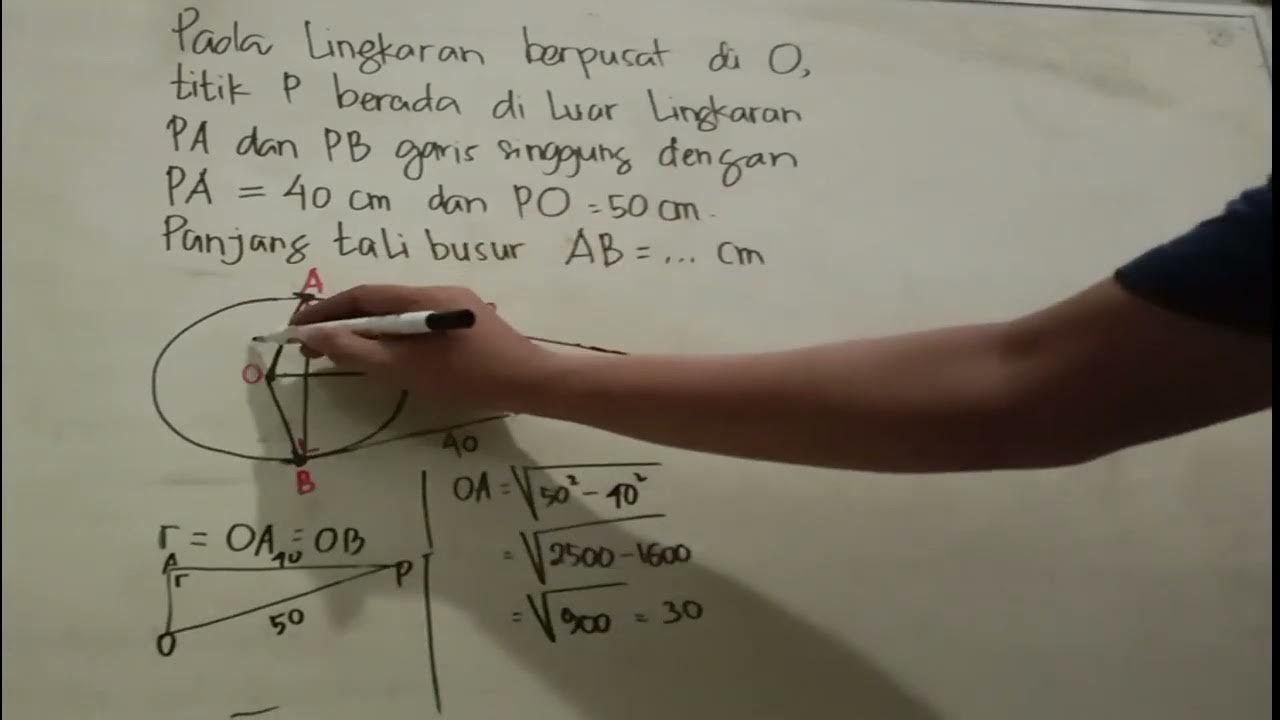 Pada Lingkaran berpusat di O,
titik P berada di luar Lingkaran
PA dan PB garis singgung dengan
PA = 40 cm dan PO = 50 cm.
Panjang tali busur AB = ... cm
A
O
40
B
r = OA = OB
A 40
r P
50
O
OA = √50² - 40²
= √2500 - 1600
= √900 = 30